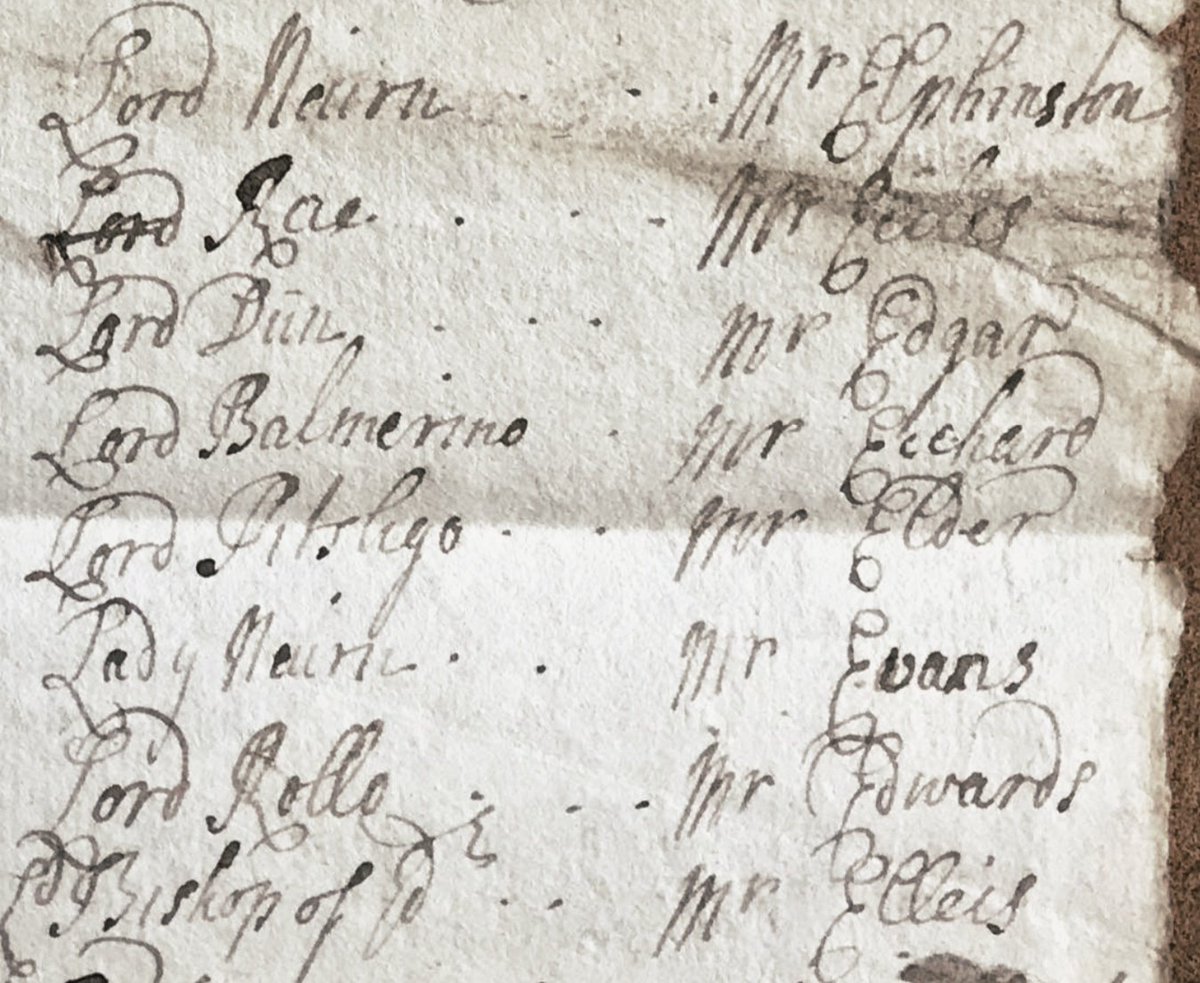 Lord Neirn . . . Mr Elphinston
Lord Rae . . . Mr Eccles
Lord Dun . . . Mr Edgar
Lord Balmerino . Mr Eichard
Lord Pitsligo . . Mr Elder
Lady Neirn . . Mr Evans
Lord Rollo . . . Mr Edwards
Ld Bishop of Edr . . Mr Elleis